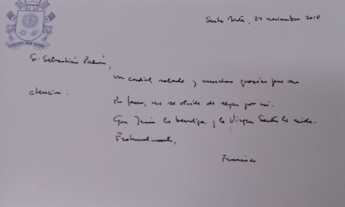 Santa Marta, 24 noviembre 2018
S. Sebastián Padrón,
un cordial saludo y muchas gracias por su
atención.
Por favor, no se olvide de rezar por mí.
Que Jesús lo bendiga y la Virgen Santa lo cuide.
Fraternalmente,
Francisco